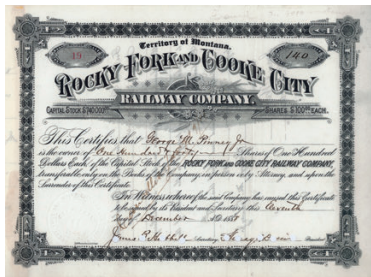 Territory of Montana.
19
140
ROCKY FORK AND COOKE CITY
RAILWAY COMPANY.
CAPITAL STOCK
SHARES $100 EACH.
This Certifies that George M. Pinney Jr
is the owner of One Hundred & forty Shares of One Hundred
Dollars Each, of the Capital Stock of the ROCKY FORK AND COOKE CITY RAILWAY COMPANY,
transferable only on the Books of the Company, in person or by Attorney, and upon the
Surrender of this Certificate.
In Witness whereof the said Company has caused this Certificate
to be signed by its President and Secretary this Eleventh
day of December
Secretary
President